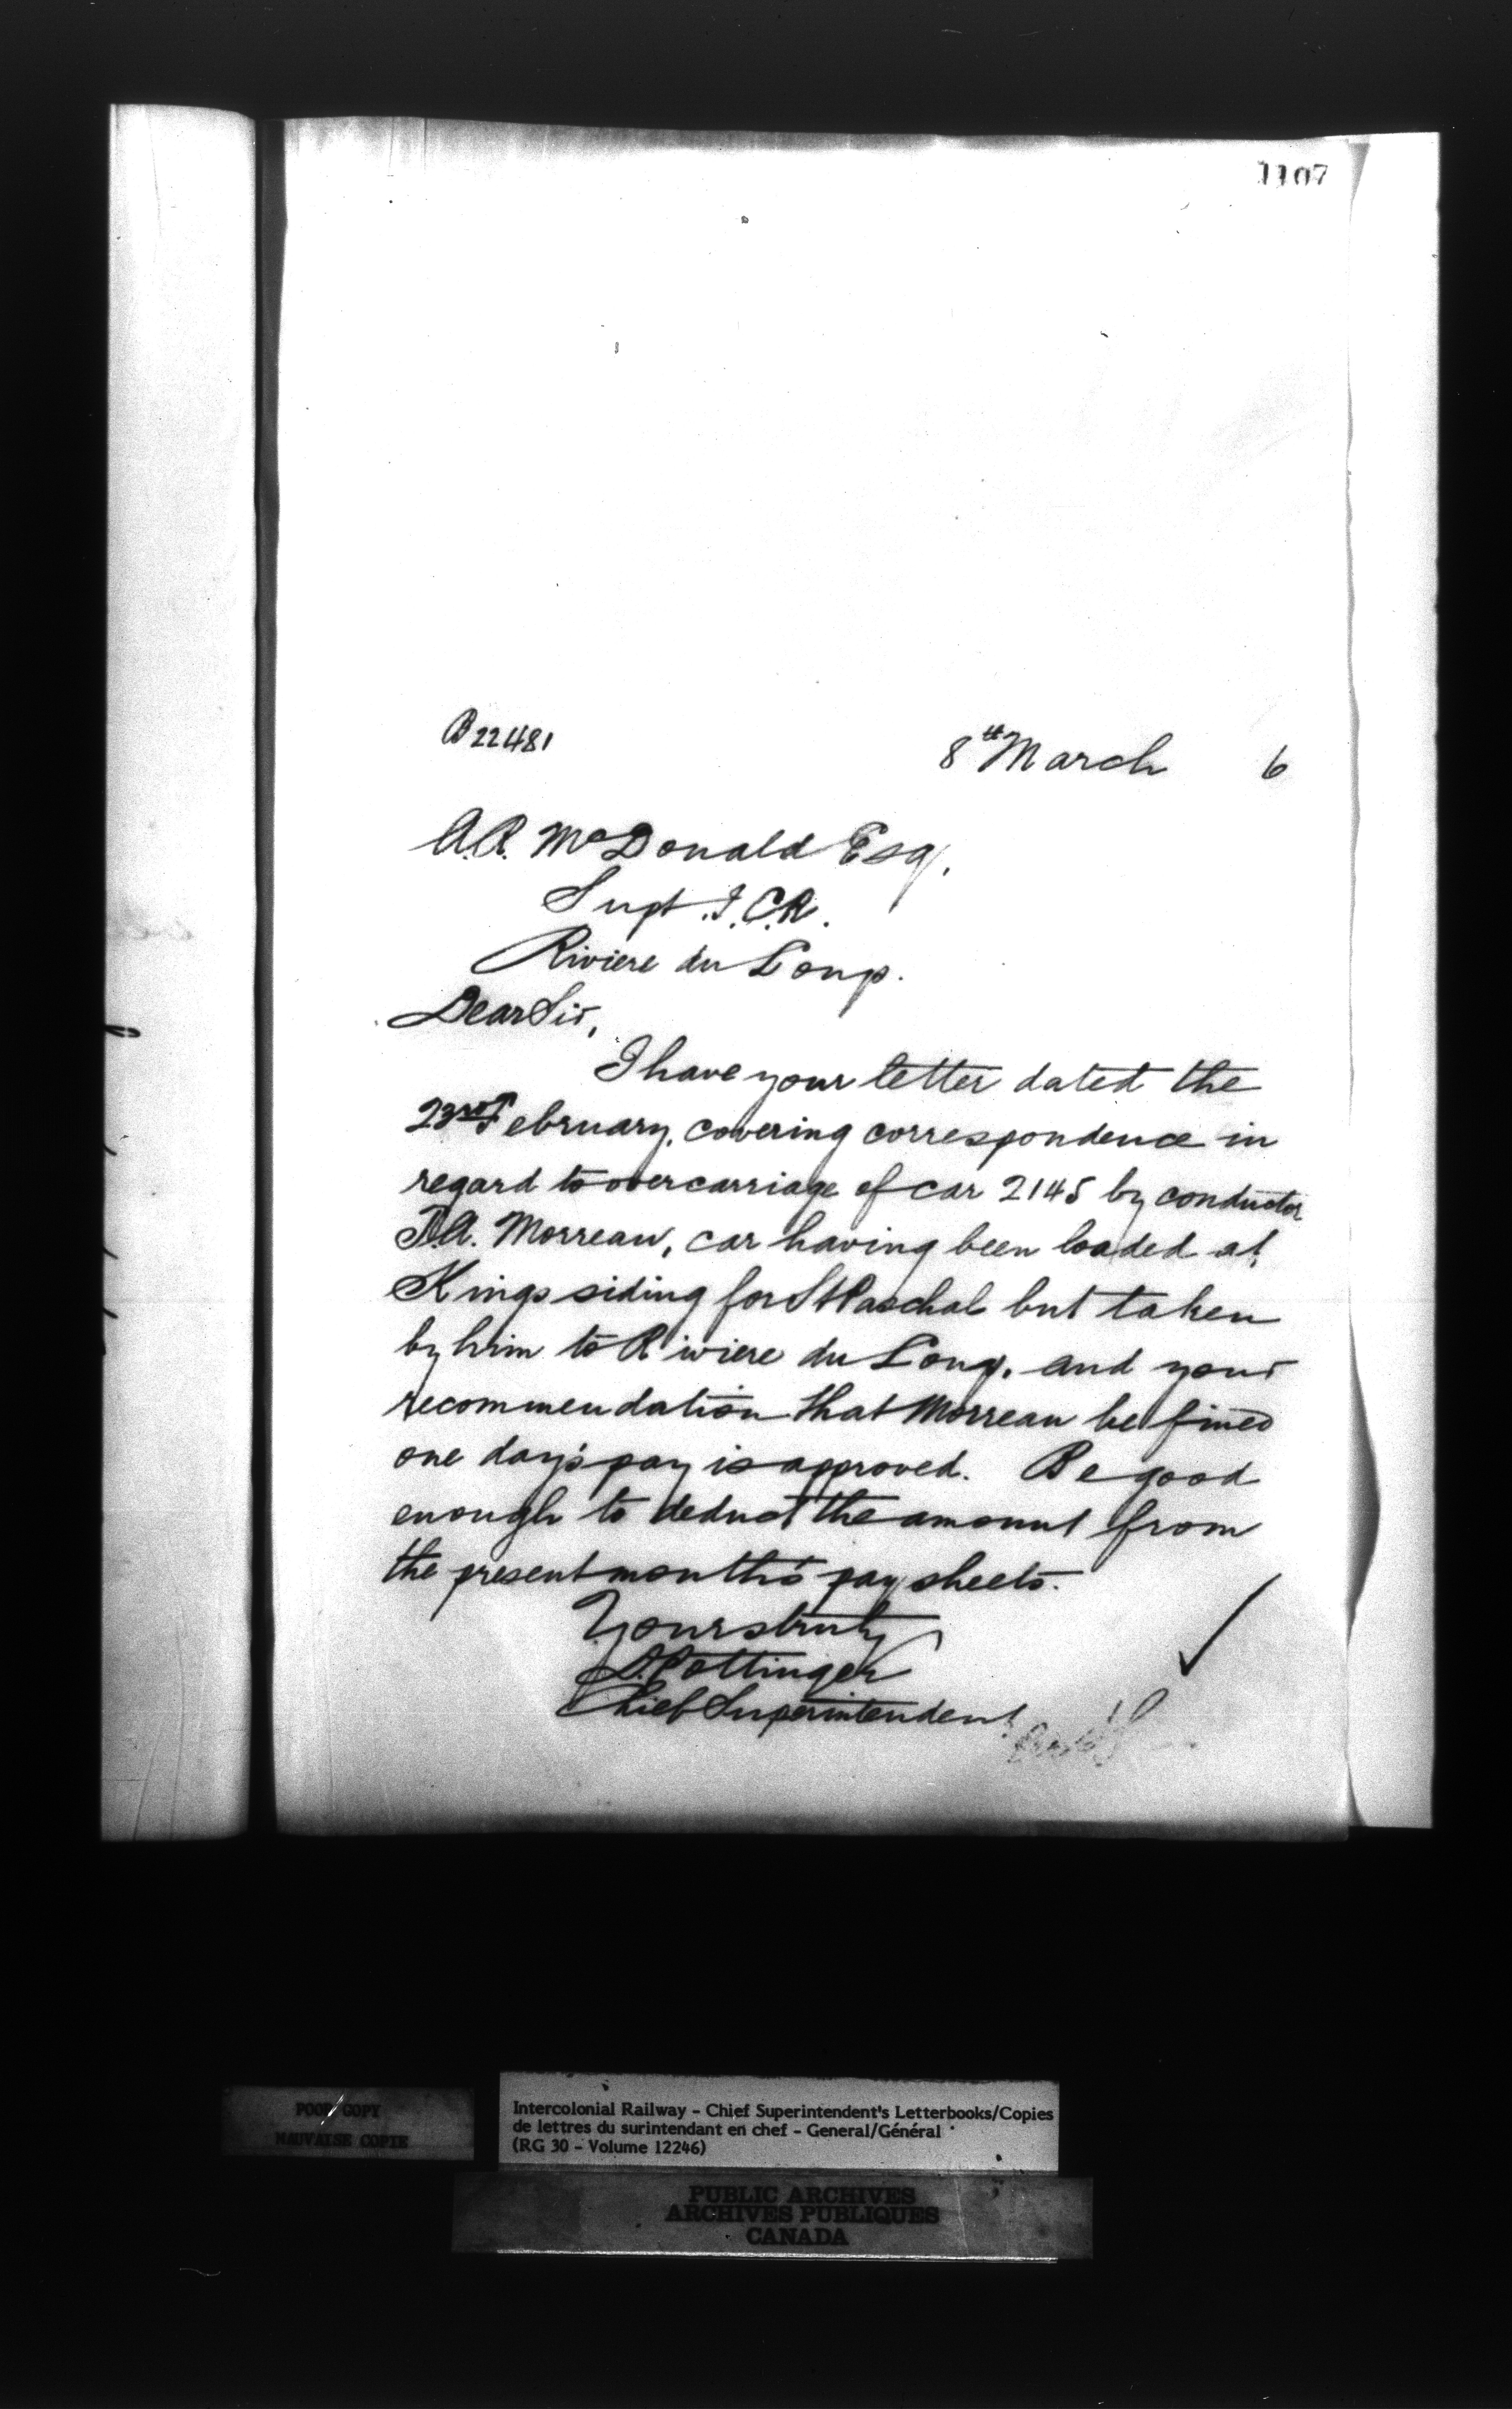 1107
B 22481
8th March 6
A.R. McDonald Esq.
Supt. I.C.R.
Riviere du Loup.
Dear Sir,
I have your letter dated the
23rd February, covering correspondence in
regard to overcarriage of car 2145 by conductor
Morreau, car having been loaded at
Kings siding for St Paschal but taken
by him to Riviere du Loup, and your
recommendation that Morreau be fined
one day's pay is approved. Be good
enough to deduct the amount from
the present month's pay sheets.
Yours truly
D. Pottinger
Chief Superintendent
POOR COPY
MAUVAISE COPIE
Intercolonial Railway - Chief Superintendent's Letterbooks/Copies
de lettres du surintendant en chef - General/Général
(RG 30 - Volume 12246)
PUBLIC ARCHIVES
ARCHIVES PUBLIQUES
CANADA